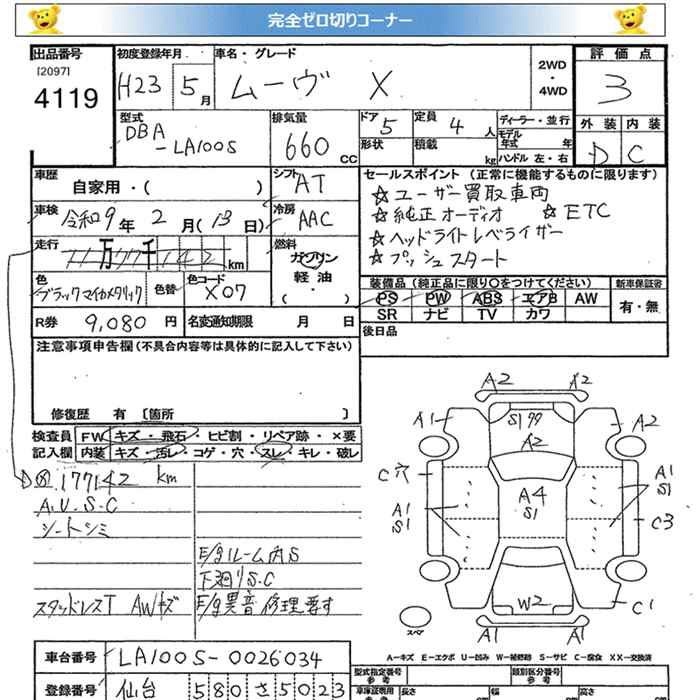 完全ゼロ切りコーナー
出品番号
[2097]
4119
初度登録年月
H23 5月
車名・グレード
ムーヴ X
2WD
・
4WD
評価点
3
外装 内装
D C
型式
DBA
-LA100S
排気量
660 cc
ドア 5
定員 4 人
形状
積載 kg
ディーラー・並行
モデル年式 年
ハンドル 左・右
車歴
自家用・( )
シフト AT
車検
令和9年 2月(13日)
冷房 AAC
走行
11万77千142 km
燃料
ガソリン
軽油
・( )
色
ブラックマイカメタリック
色替
色コード
X07
R券 9,080 円
名変通知期限 月 日
セールスポイント (正常に機能するものに限ります)
☆ユーザー買取車両
☆純正オーディオ ☆ETC
☆ヘッドライトレベライザー
☆プッシュスタート
装備品 (純正品に限り○をつけてください)
PS PW ABS エアB AW
SR ナビ TV カワ
新車保証書
有・無
後日品
注意事項申告欄(不具合内容等は具体的に記入して下さい)
修復歴 有 〔箇所 〕
検査員
記入欄
FW キズ・飛石・ヒビ割・リペア跡・×要
内装 キズ・汚レ・コゲ・穴・スレ・キレ・破レ
177142 km
A.U.S.C
シートシミ
E/gルーム内S
下廻りS.C
スタッドレスT AWキズ
E/g異音修理要す
A2 X2
A1 S1 77 A2
A2
C穴 A1
S1
A4
S1
A1
S1
C3
W2
C1
A1 A1
スペア
A−キズ E−エクボ U−凹み W−補修跡 S−サビ C−腐食 XX−交換済
車台番号 LA100S-0026034
登録番号 仙台 580 さ 5023
型式指定番号
参考
類別区分番号
参考
車庫証明用
長さ
幅
高さ